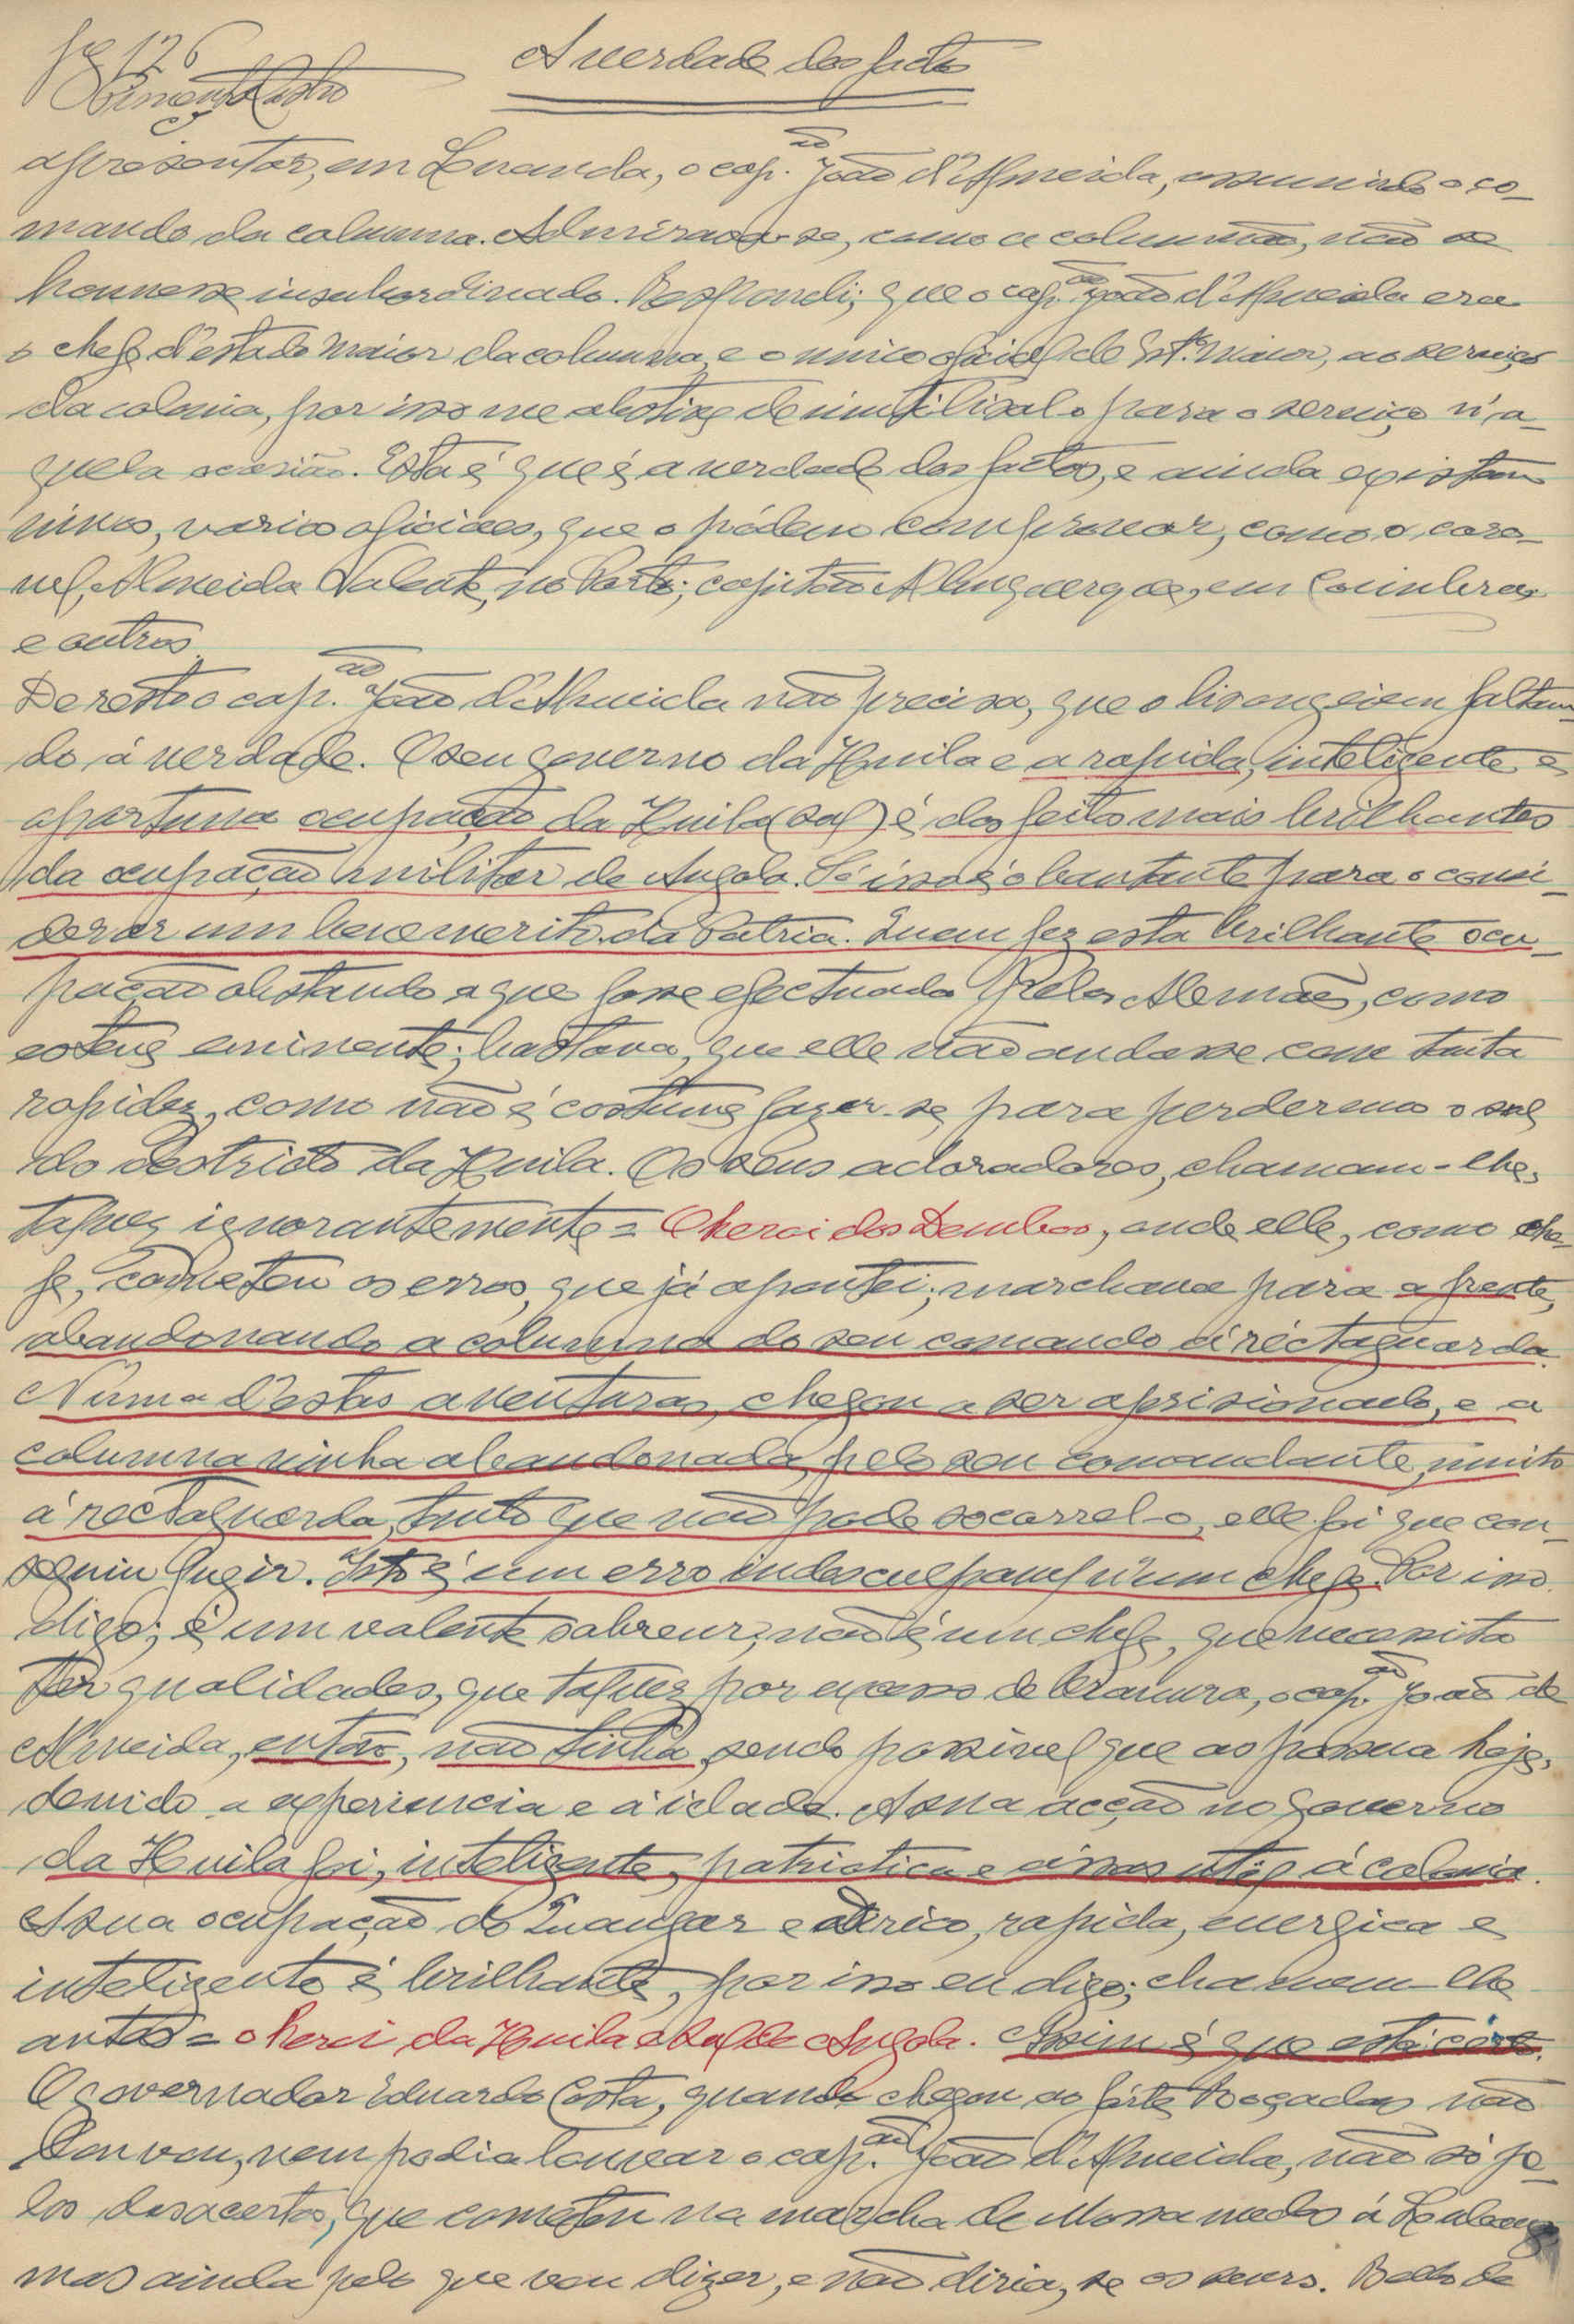 fg 126
A verdade dos factos
apresentar, em Loanda, o cap.ão João d'Almeida, assumindo o co-
mando da columna. Admirava-se, como a columna, não se
houvesse insubordinado. Respondi; que o cap.ão João d'Almeida era
o chefe d'estado maior da columna, e o unico oficial de Est.º maior, ao serviço
da colonia, por isso me abstive de inutilisal-o para o serviço n'a-
quela ocasião. Esta é que é a verdade dos factos, e ainda existem
vivos, varios oficiaes, que o pódem comprovar, como o coro-
nel, Almeida Valente, no Porto; capitão Albuquerque, em Coimbra,
e outros.
De resto o cap.ão João d'Almeida não precisa, que o lisongeiem faltan-
do á verdade. O seu governo da Huila e a rapida, inteligente e
oportuna ocupação da Huila (sul) é dos feitos mais brilhantes
da ocupação militar de Angola. Só isso é o bastante para o consi-
derar um benemerito da Patria. Quem fez esta brilhante ocu-
pação obstando a que fosse efectuada pelos Alemães, como
esteve eminente; bastava, que elle não andasse com tanta
rapidez, como não é costume fazer-se para perdermos o sul
do destricto da Huila. Os seus adoradores, chamam-lhe,
talvez ignorantemente = O heroi dos Dembos, onde elle, como che-
fe, cometeu os erros, que já apontei; marchava para a frente,
abandonando a columna do seu comando á rectaguarda.
N'uma d'estas aventuras, chegou a ser aprisionado, e a
columna vinha abandonada, pelo seu comandante, muito
á rectaguarda, tanto que não pode socorrel-o, elle foi que con-
seguiu fugir. Isto é um erro indesculpavel n'um chefe. Por isso
digo; é um valente sabreur; não é um chefe, que necessita
ter qualidades, que talvez por excesso de bravura, o cap.ão João de
Almeida, então, não tinha, sendo possivel que as possua hoje,
devido a experiencia e á idade. A sua acção no governo
da Huila foi, inteligente, patriotica e util á colonia.
A sua ocupação do Cuangar e Dirico, rapida, energica e
inteligente é brilhante, por isso eu digo; chamem-lhe
antes = o heroi da Huila e sul de Angola. Assim é que está certo.
O governador Eduardo Costa, quando chegou ao forte Roçadas não
louvou, nem podia louvar o cap.ão João d'Almeida, não só pe-
los desacertos, que cometeu na marcha de Mossamedes á
mas ainda pelo que vou dizer, e não diria, se os seus.